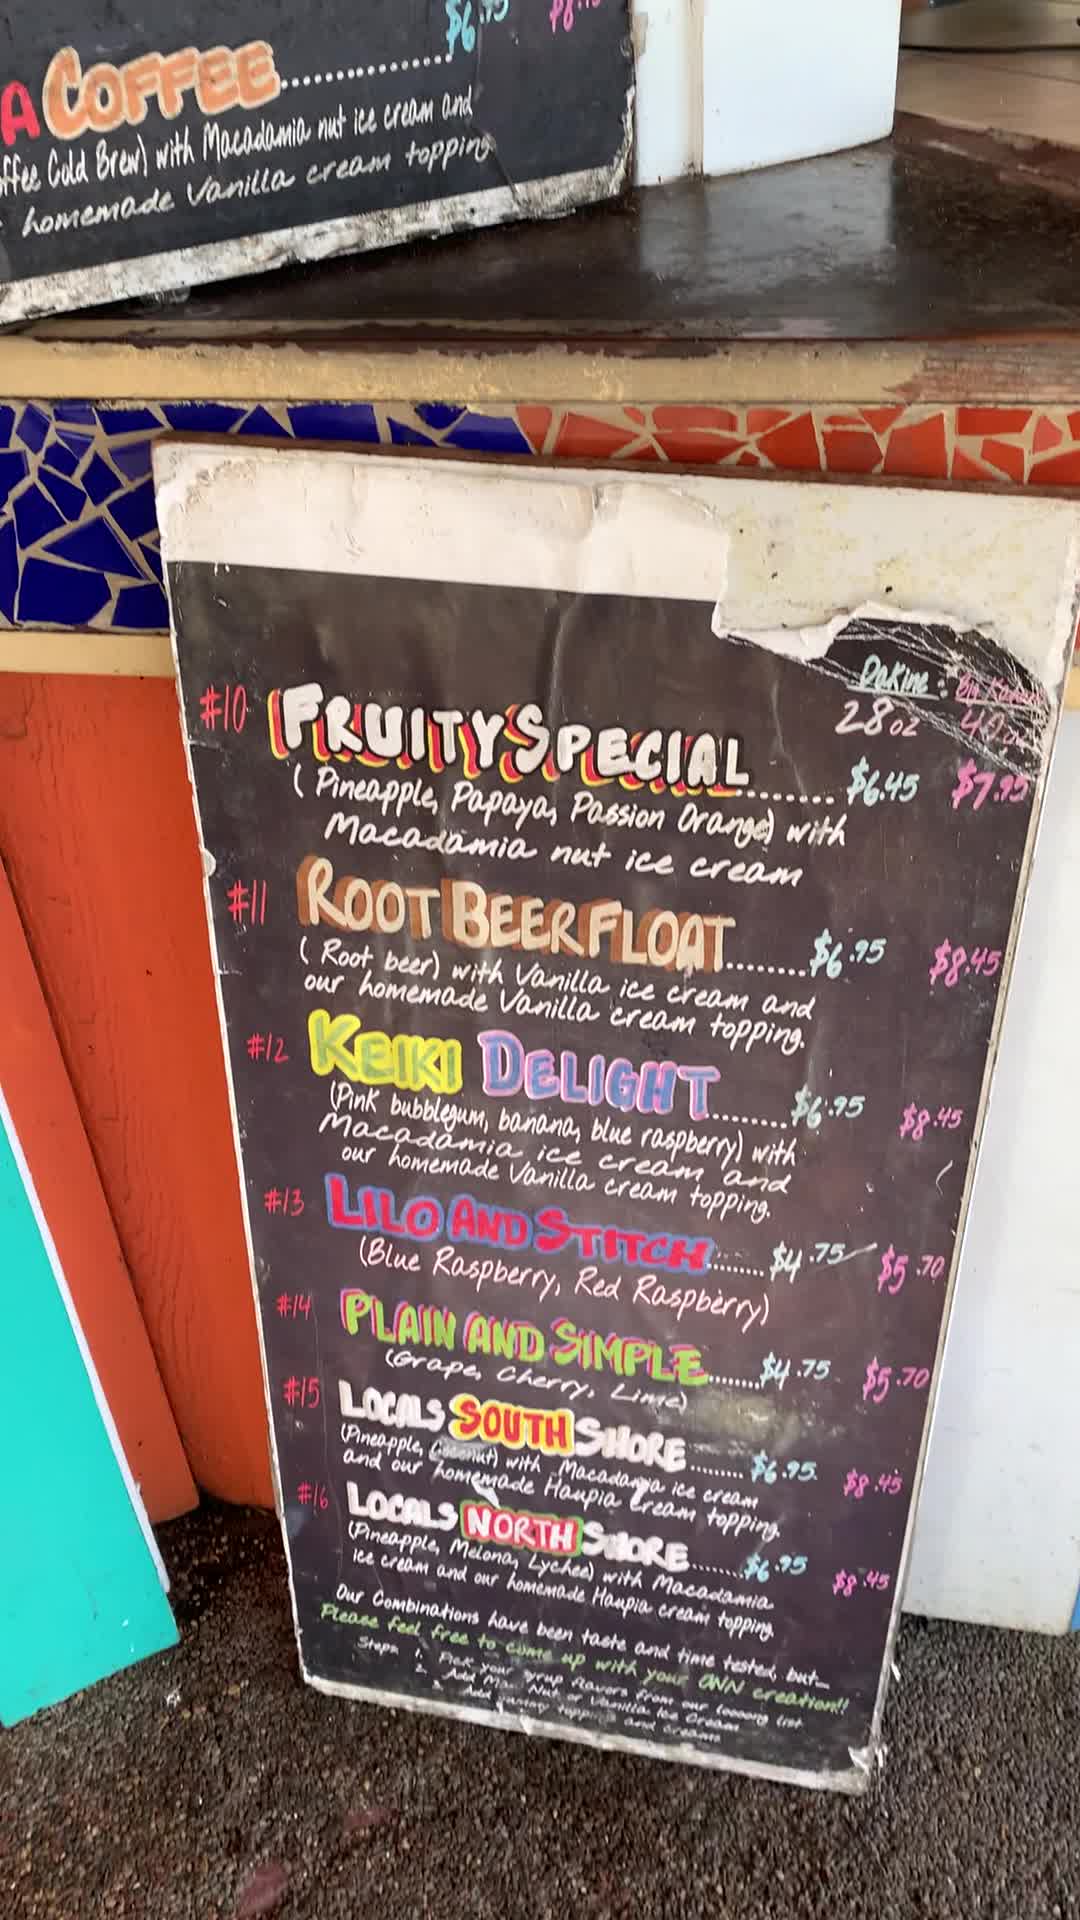 $6.95 $8.45
A COFFEE
Cold Brew) with Macadamia nut ice cream and
homemade Vanilla cream topping
Dakine: Big
28oz 40oz
#10 FRUITY SPECIAL........ $6.45 $7.95
(Pineapple, Papaya, Passion Orange) with
Macadamia nut ice cream
#11 ROOT BEER FLOAT........ $6.95 $8.45
(Root beer) with Vanilla ice cream and
our homemade Vanilla cream topping.
#12 KEIKI DELIGHT....... $6.95 $8.45
(Pink bubblegum, banana, blue raspberry) with
Macadamia ice cream and
our homemade Vanilla cream topping.
#13 LILO AND STITCH....... $4.75 $5.70
(Blue Raspberry, Red Raspberry)
#14 PLAIN AND SIMPLE....... $4.75 $5.70
(Grape, Cherry, Lime)
#15 LOCALS SOUTH SHORE....... $6.95 $8.45
(Pineapple, Coconut) with Macadamia ice cream
and our homemade Haupia cream topping.
#16 LOCALS NORTH SHORE....... $6.95 $8.45
(Pineapple, Melona, Lychee) with Macadamia
ice cream and our homemade Haupia cream topping.
Our Combinations have been taste and time tested, but...
Please feel free to come up with your OWN creation!!
Steps: 1. Pick your syrup flavors from our loooong list
2. Add Mac Nut or Vanilla Ice Cream
3. Add yummy toppings and creams